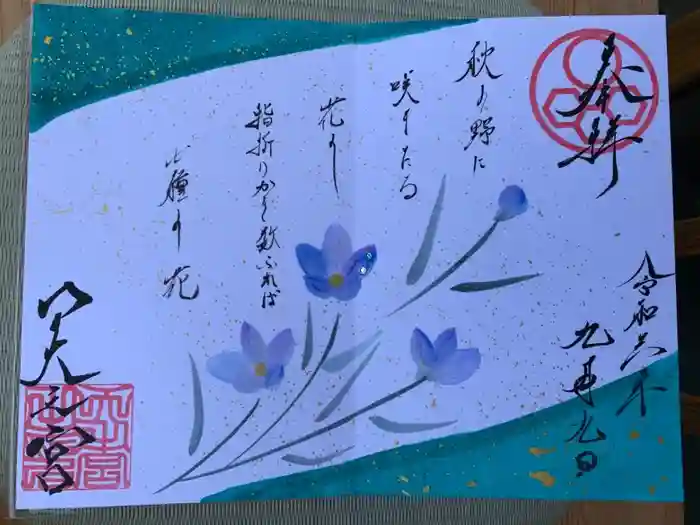 奉拝
令和六年
九月九日
秋の野に
咲きたる
花を
指折りかき数ふれば
七種の花
之宮